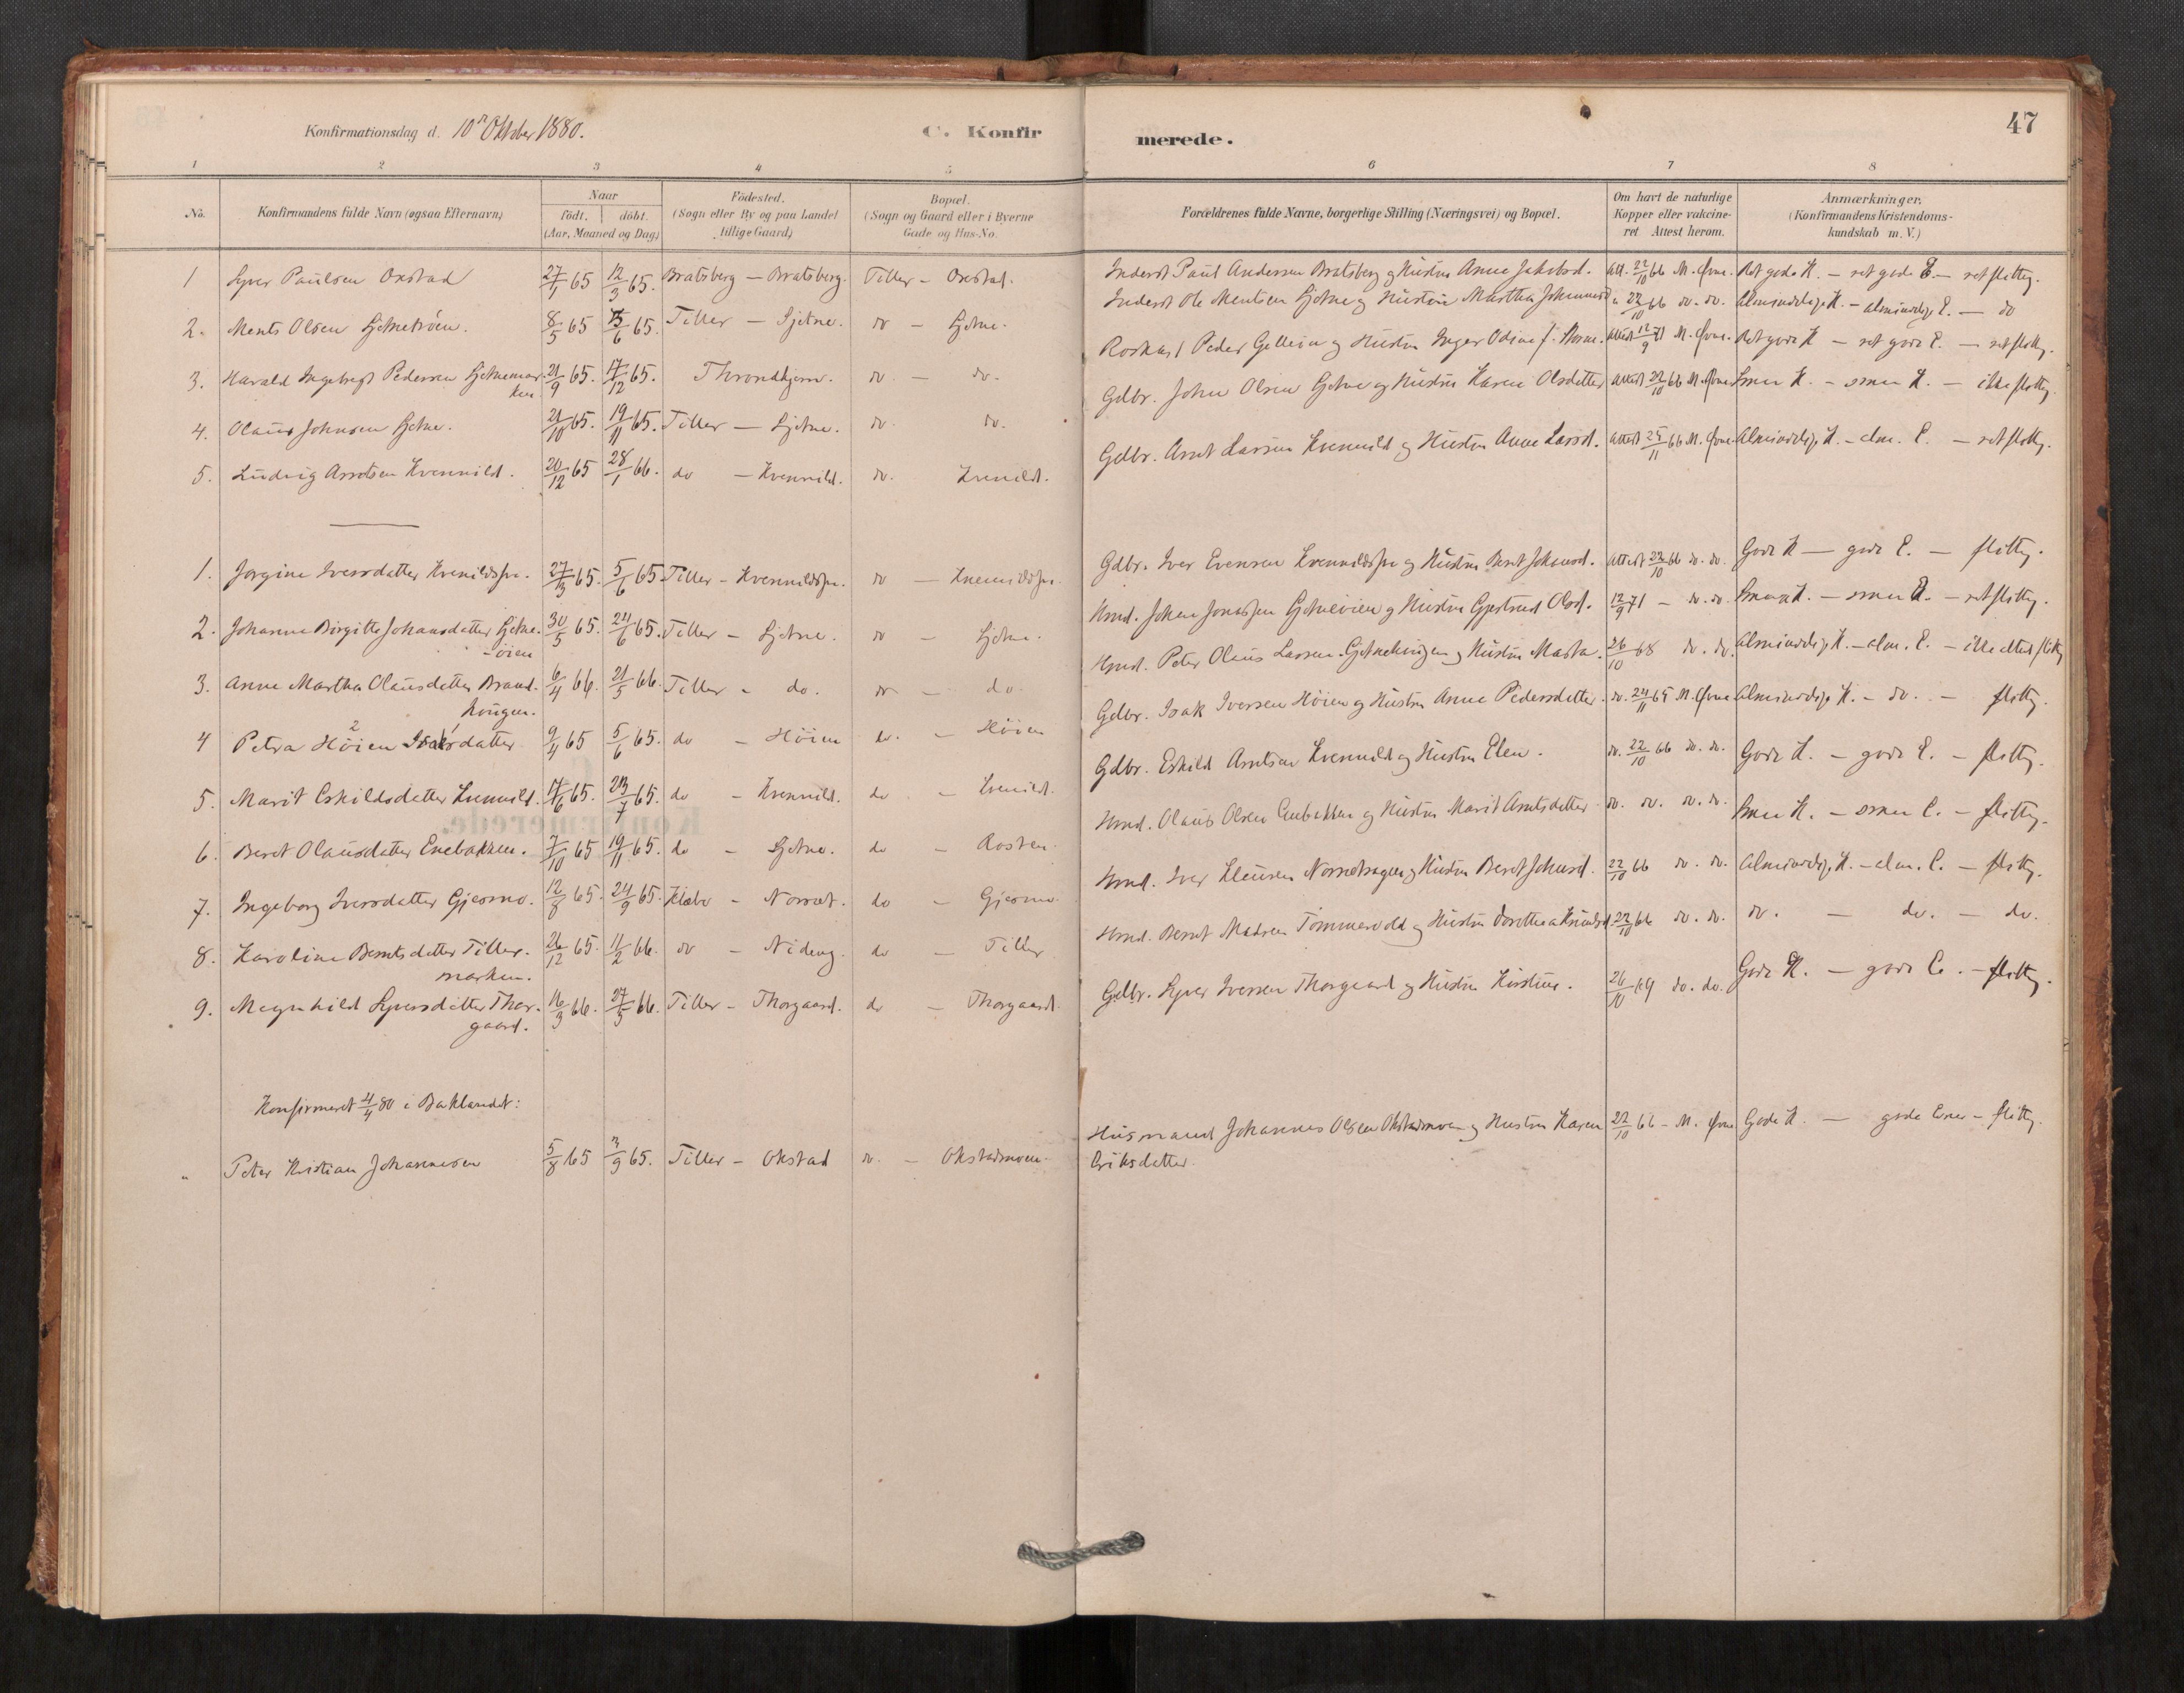 Konfirmationsdag d. 10de Oktober 1880. C. Konfirmerede. 47
1 2 3 4 5 6 7 8
No. Konfirmandens fulde Navn (ogsaa Efternavn) Naar födt. döbt. (Aar, Maaned og Dag) Födested. (Sogn eller By og paa Landet tillige Gaard) Bopæl. (Sogn og Gaard eller i Byerne Gade og Hus-No. Forældrenes fulde Navne, borgerlige Stilling (Næringsvei) og Bopæl. Om havt de naturlige Kopper eller vakcineret Attest herom. Anmærkninger. (Konfirmandens Kristendomskundskab m. V.)
1 Syver Paulsen Oxstad 27/1 65 12/3 65. Bratsberg — Bratsberg. Tiller — Oxstad. Inderst Paul Andersen Bratsberg og Hustru Anne Jakobsd. Att. 22/10 66 M. Øvre. Ret gode K. — ret gode E. — ret flittig.
2. Ments Olsen Sjetnetrøen. 8/5 65 5/6 65. Tiller — Sjetne. do — Sjetne. Inderst Ole Mentsen Sjetne og Hustru Martha Johannesd. 22/10 66 do. do. Almindelige K. — almindelige E. — do
3. Harald Ingebrigt Pedersen Sjetnemarken. 21/9 65. 17/12 65. Throndhjem. do. — do. Peder Gellein og Hustru Inger Odine f. Attest 12/9 71 M. Øvre. Ret gode K — ret gode E. — ret flittig.
4. Olaus Johnsen Sjetne. 21/10 65. 19/11 65. Tiller — Sjetne. do. do. Gdbr. John Olsen Sjetne og Hustru Karen Olsdatter Attest 22/10 66 M. Øvre Smaa K. — smaa E. — ikke flittig.
5. Ludvig Arntsen Kvennild. 20/12 65 28/1 66. do — Kvennild. do. Kvenild. Gdbr. Arnt Larsen Kvennild og Hustru Anne Larsd. Attest 25/11 66 M. Øvre Almindelige K. — alm. E. — ret flittig.
1. Jorgine Iversdatter Kvenildspr. 27/3 65. 5/6 65 Tiller — Kvennildspr. do — Kvennildspr. Gdbr. Iver Evensen Kvennildspr og Hustru Beret Johansd. Attest 22/10 66 do. do. Gode K — gode E. — flittig.
2. Johanna Birgitte Johansdatter Sjetneøien 30/5 65. 24/6 65. Tiller — Sjetne. do — Sjetne. Hmd. Johan Jonassen Sjetneøien og Hustru Gjertrud Olsd. 12/9 71 — do. do. Smaa K. — smaa E. — ret flittig.
3. Anne Martha Olausdatter Brandhougen. 6/4 66. 21/5 66. Tiller — do. do — do. Hmd. Peter Olaus Larsen Sjetnehougen og Hustru Marta. 26/10 68 do. do. Almindelige K. — alm. E. — ikke altid flittig
4 Petra Høien Isaksdatter 9/4 65 5/6 65. do — Høien do. — Høien Gdbr. Isak Iversen Høien og Hustru Anne Pedersdatter. do. 24/11 65 M. Øvre Almindelige K. — do. — flittig.
5. Marit Eskildsdatter Kvennild. 17/6 65. 23/7 65. do — Kvennild. do — Kvenild. Gdbr. Eskild Arntsen Kvennild og Hustru Elen. do. 22/10 66 do. do. Gode K. — gode E. — flittig.
6. Beret Olausdatter Enebakken. 7/10 65 19/11 65. do — Sjetne. do — Rosten. Hmd. Olaus Olsen Enebakken og Hustru Marit Arntsdatter do. do. do. do. Smaa K. — smaa E. — flittig.
7. Ingeborg Iversdatter Gjesmo. 12/8 65. 24/9 65. Klæbo — Norset. do — Gjesmo. Hmd. Iver Klausen Norsethagen og Hustru Beret Johnsd. 22/10 66 do. do. Almindelige K. — alm. E. — flittig.
8. Karoline Berntsdatter Tillermarken. 26/12 65. 11/2 66. do — Nideng. do — Tiller Hmd. Bernt Madsen Tømmervold og Hustru Dorothea Knudsd. 22/10 66 do. do. do. — do. — do.
9. Magnhild Syversdatter Thorgaard. 16/3 66. 27/5 66. Tiller — Thorgaard. do — Thorgaard. Gdbr. Syver Iversen Thorgaard og Hustru Kirstine. 26/10 69 do. do. Gode K. — gode E. — flittig.
Konfirmeret 4/4 80 i Baklandet:
" Peter Kristian Johannesen 5/8 65 3/9 65. Tiller — Okstad do. — Okstadmoen. Husmand Johannes Olsen Okstadmoen og Hustru Karen Eriksdatter. 22/10 66 — M. Øvre Gode K. — gode Evner — flittig.